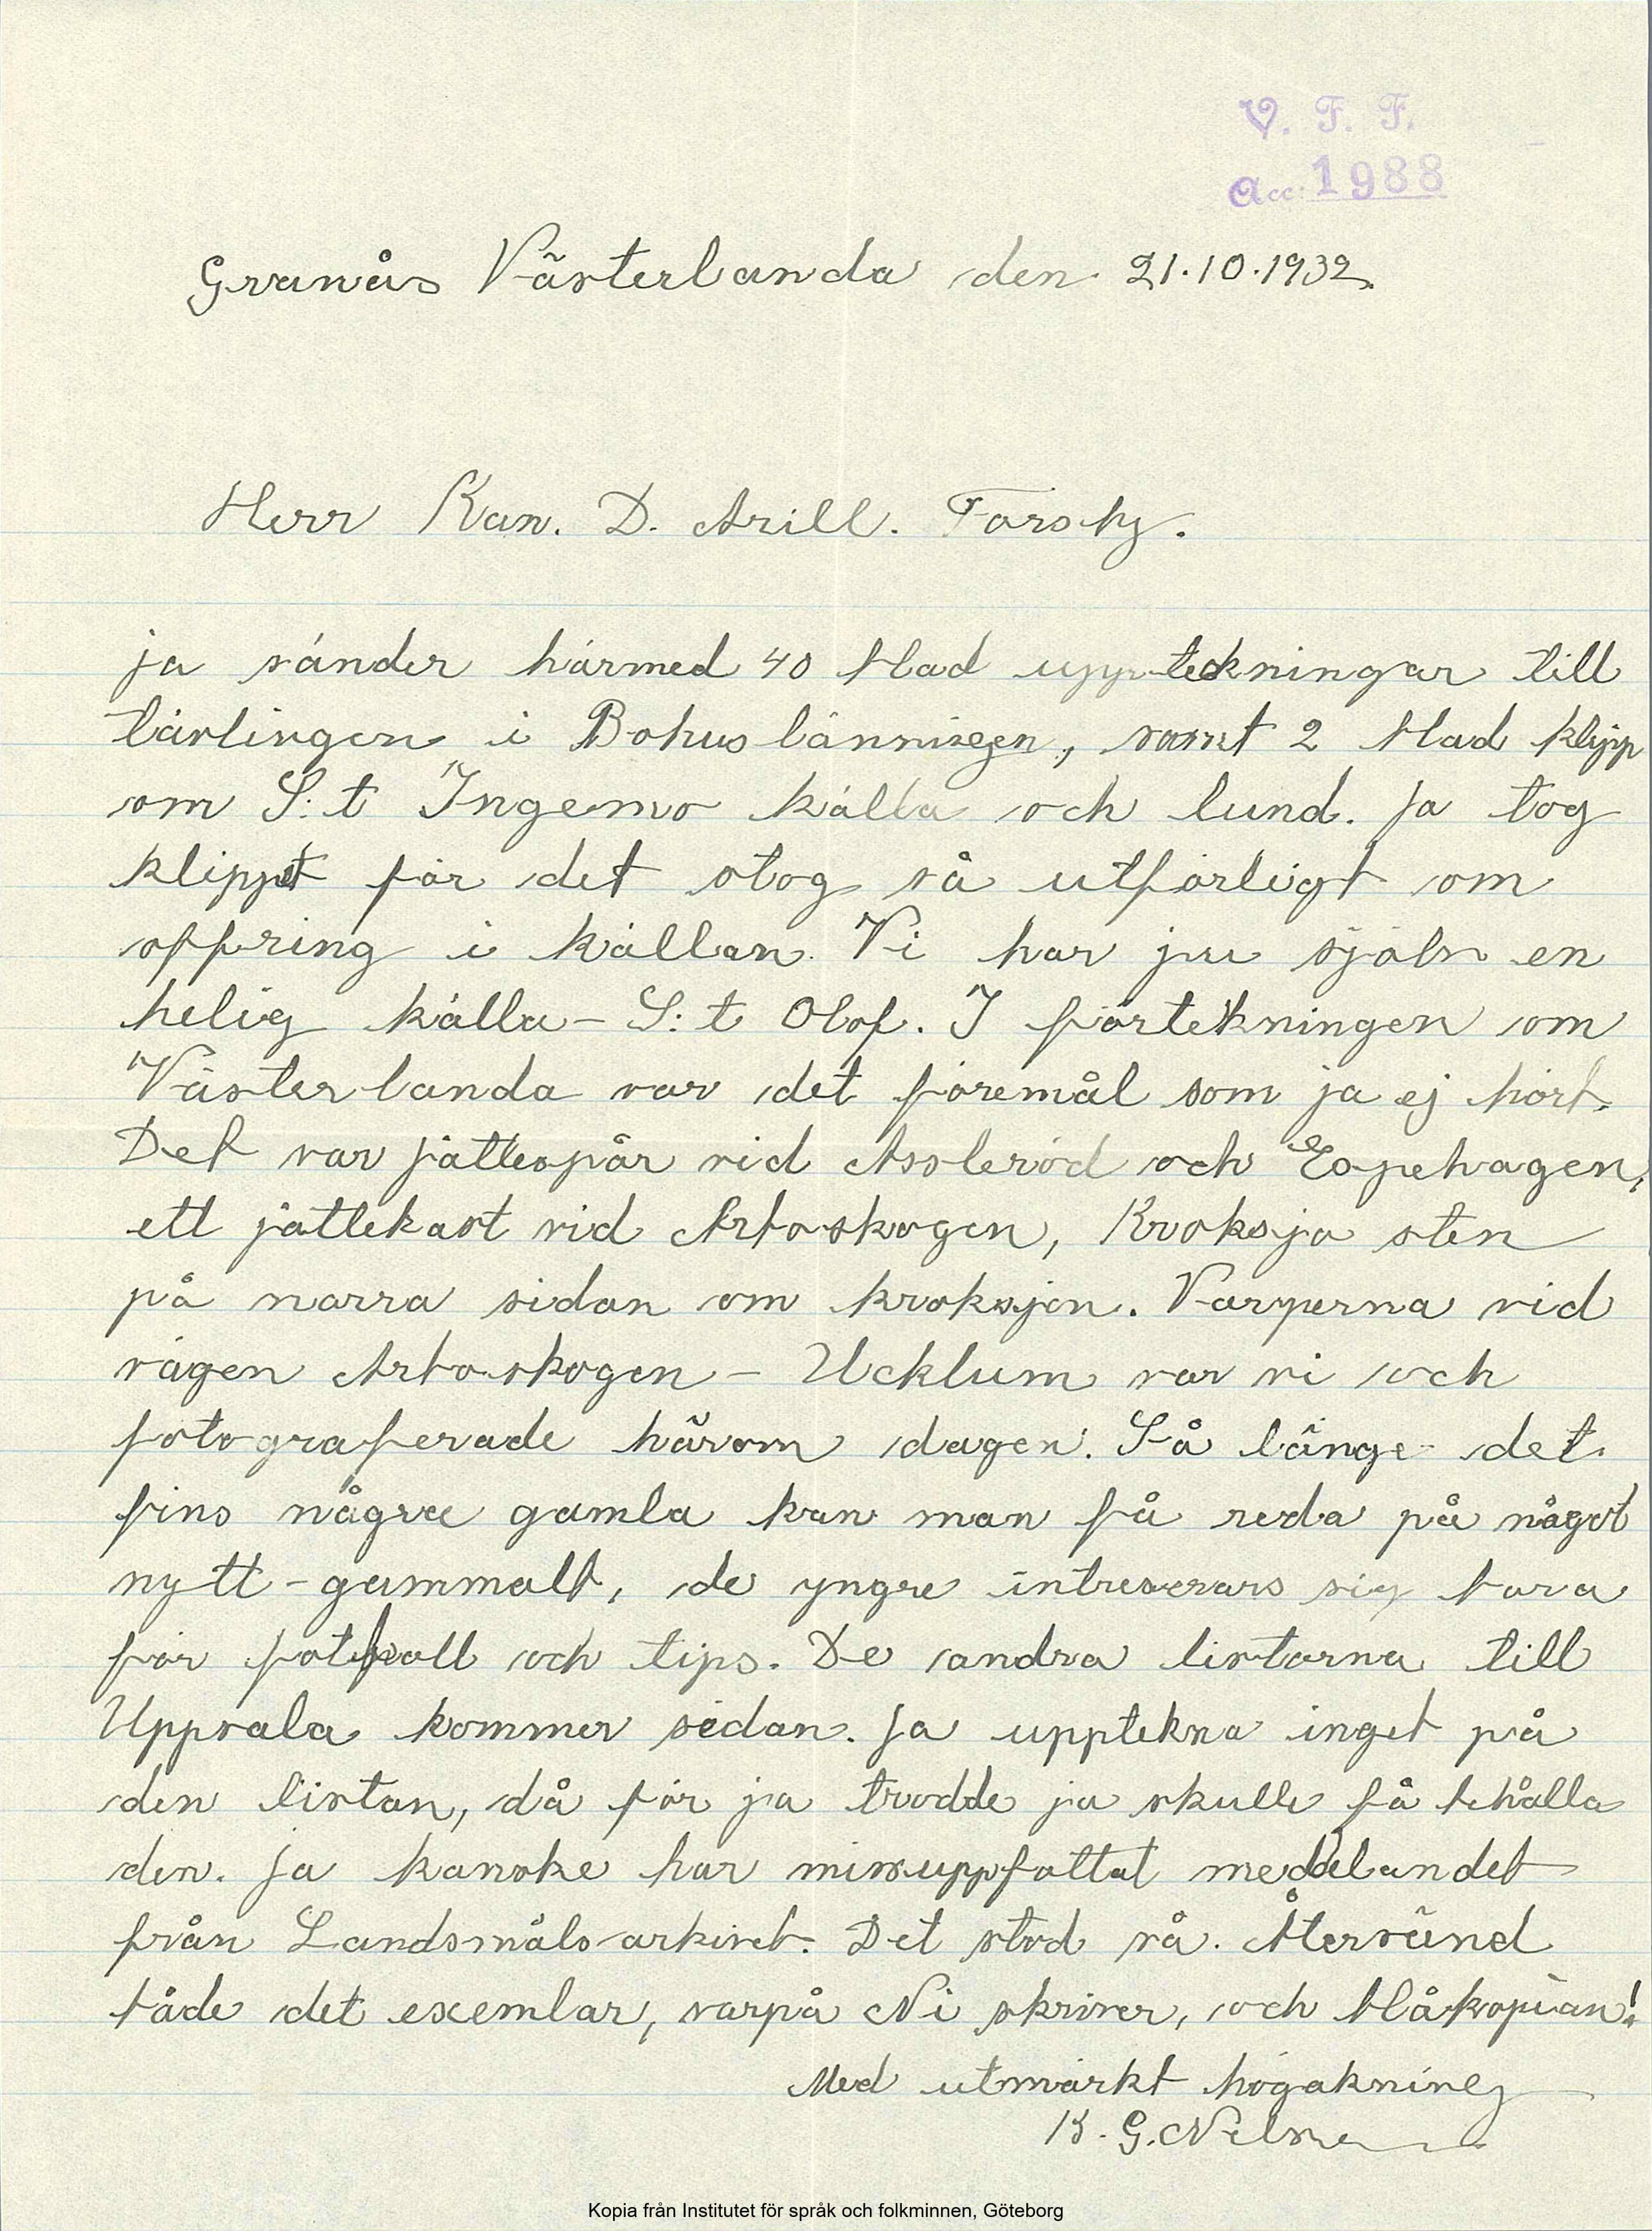 V. F. F.
Acc: 1988
Granås Västerlanda den 21.10.1932.
Herr Kan. D. Arill. Torsby.
ja sänder härmed 40 blad uppteckningar till
tävlingen i Bohusläningen, samt 2 blad klipp
om S:t Ingemo källa och lund. Ja tog
klippet för det stog så utförligt om
offring i källan. Vi har ju själv en
helig källa – S:t Olof. I förtekningen om
Västerlanda var det föremål som ja ej hört.
Det var jättespår vid Assleröd och Espehagen,
ett jättekast vid Arboskogen, Kroksjö sten
på norra sidan om kroksjön. Varperna vid
vägen Arboskogen – Ucklum var vi och
fotograferade härom dagen. Så länge det
fins några gamla kan man få reda på något
nytt – gammalt, de yngre intreserars sig bara
för fotboll och tips. De andra listorna till
Uppsala kommer sedan. Ja upptekna inget på
den listan, då för ja trodde ja skulle få behålla
den. Ja kanske har missuppfattat meddelandet
från Landsmålsarkivet. Det stod så. Återsänd
både det exemlar, varpå Ni skriver, och blåkopian!
Med utmärkt högakning
K. G. Nilsson
Kopia från Institutet för språk och folkminnen, Göteborg